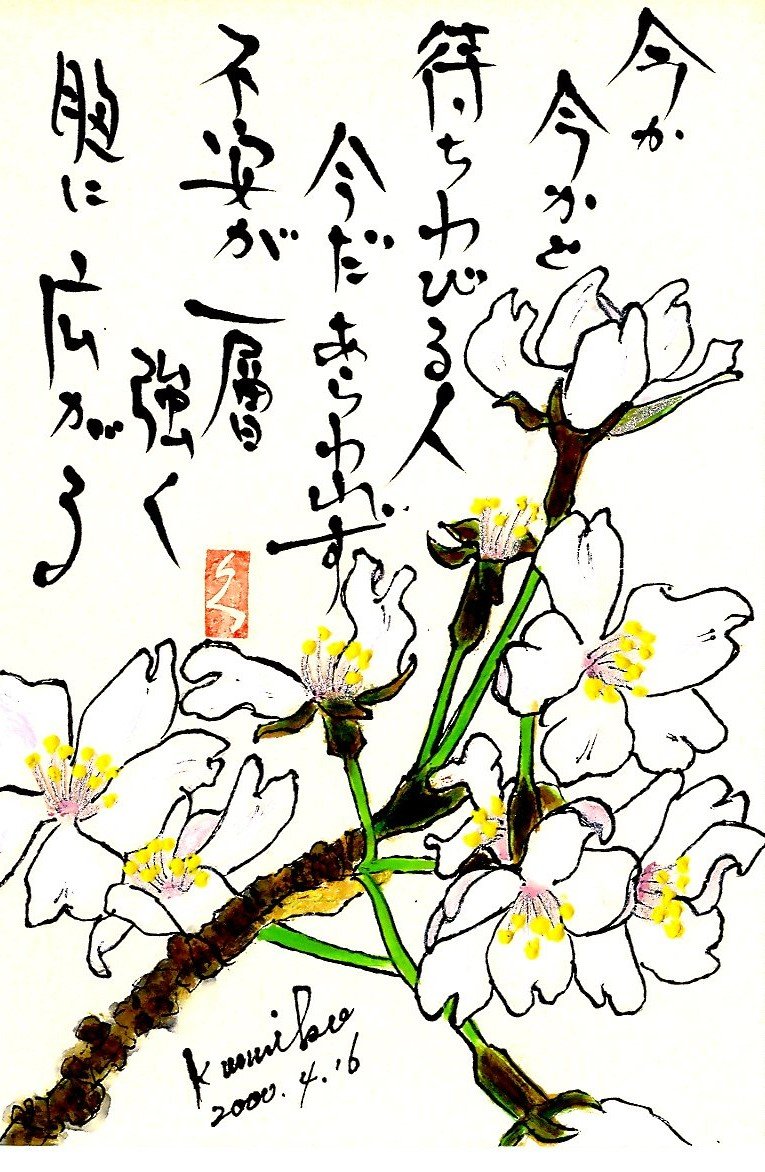 今か
今かと
待ちわびる人
今だあらわれず
不安が一層
強く
胸に広がる
く
Kumiko
2000.4.16